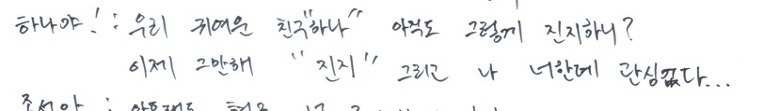 하나야! : 우리 귀여운 친구"하나" 아직도 그렇게 진지하니?
이제 그만해 "진지" 그리고 나 너한테 관심없다...